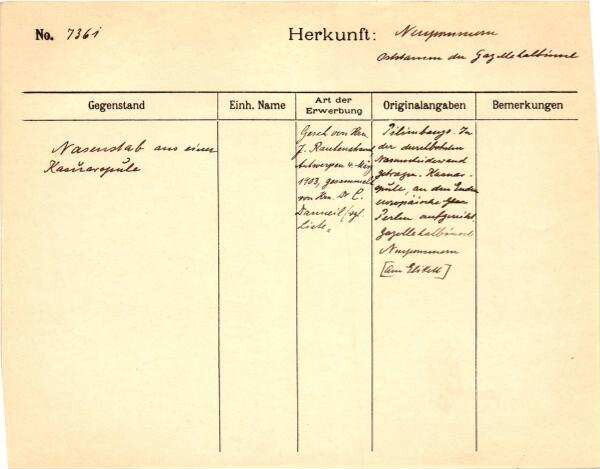 No. 7361
Herkunft: Neupommern
Oststamm der Gazellehalbinsel
Gegenstand
Einh. Name
Art der
Erwerbung
Originalangaben
Bemerkungen
Nasenstab aus einer
Kasuarspule
Gesch von Hrn
J. Rautenstrauch
Antwerpen 4. März
1903, gesammelt
von Hrn. Dr C.
Danneil (vgl.
Liste.
In
der durchbohrten
Nasenscheidewand
getragen. Kasuar-
spule, an den Enden
europäische Glas
Perlen aufgereiht
Gazellehalbinsel
Neupommern
[am Etikett]